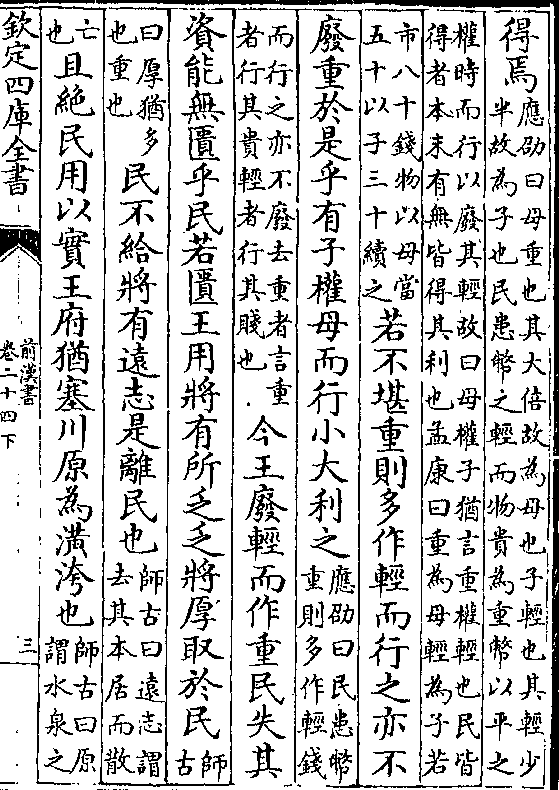 得焉
應劭曰母重也其大倍故為母也子輕也其輕少
半故為子也民患幣之輕而物貴為重幣以平之
權時而行以廢其輕故曰母權子猶言重權輕也民皆
得者本末有無皆得其利也孟康曰重為母輕為子若
市八十錢物以母當
五十以子三十續之
若不堪重則多作輕而行之亦不
廢重於是乎有子權母而行小大利之
應劭曰民患幣
重則多作輕錢
而行之亦不廢去重者言重
者行其貴輕者行其賤也
今王廢輕而作重民失其
資能無匱乎民若匱王用將有所乏乏將厚取於民
師
古
曰厚猶多
也重也
民不給將有遠志是離民也
師古曰遠志謂
去其本居而散
亡
也
且絕民用以實王府猶塞川原為潢洿也
師古曰原
謂水泉之
欽定四庫全書
前漢書
卷二十四下
三